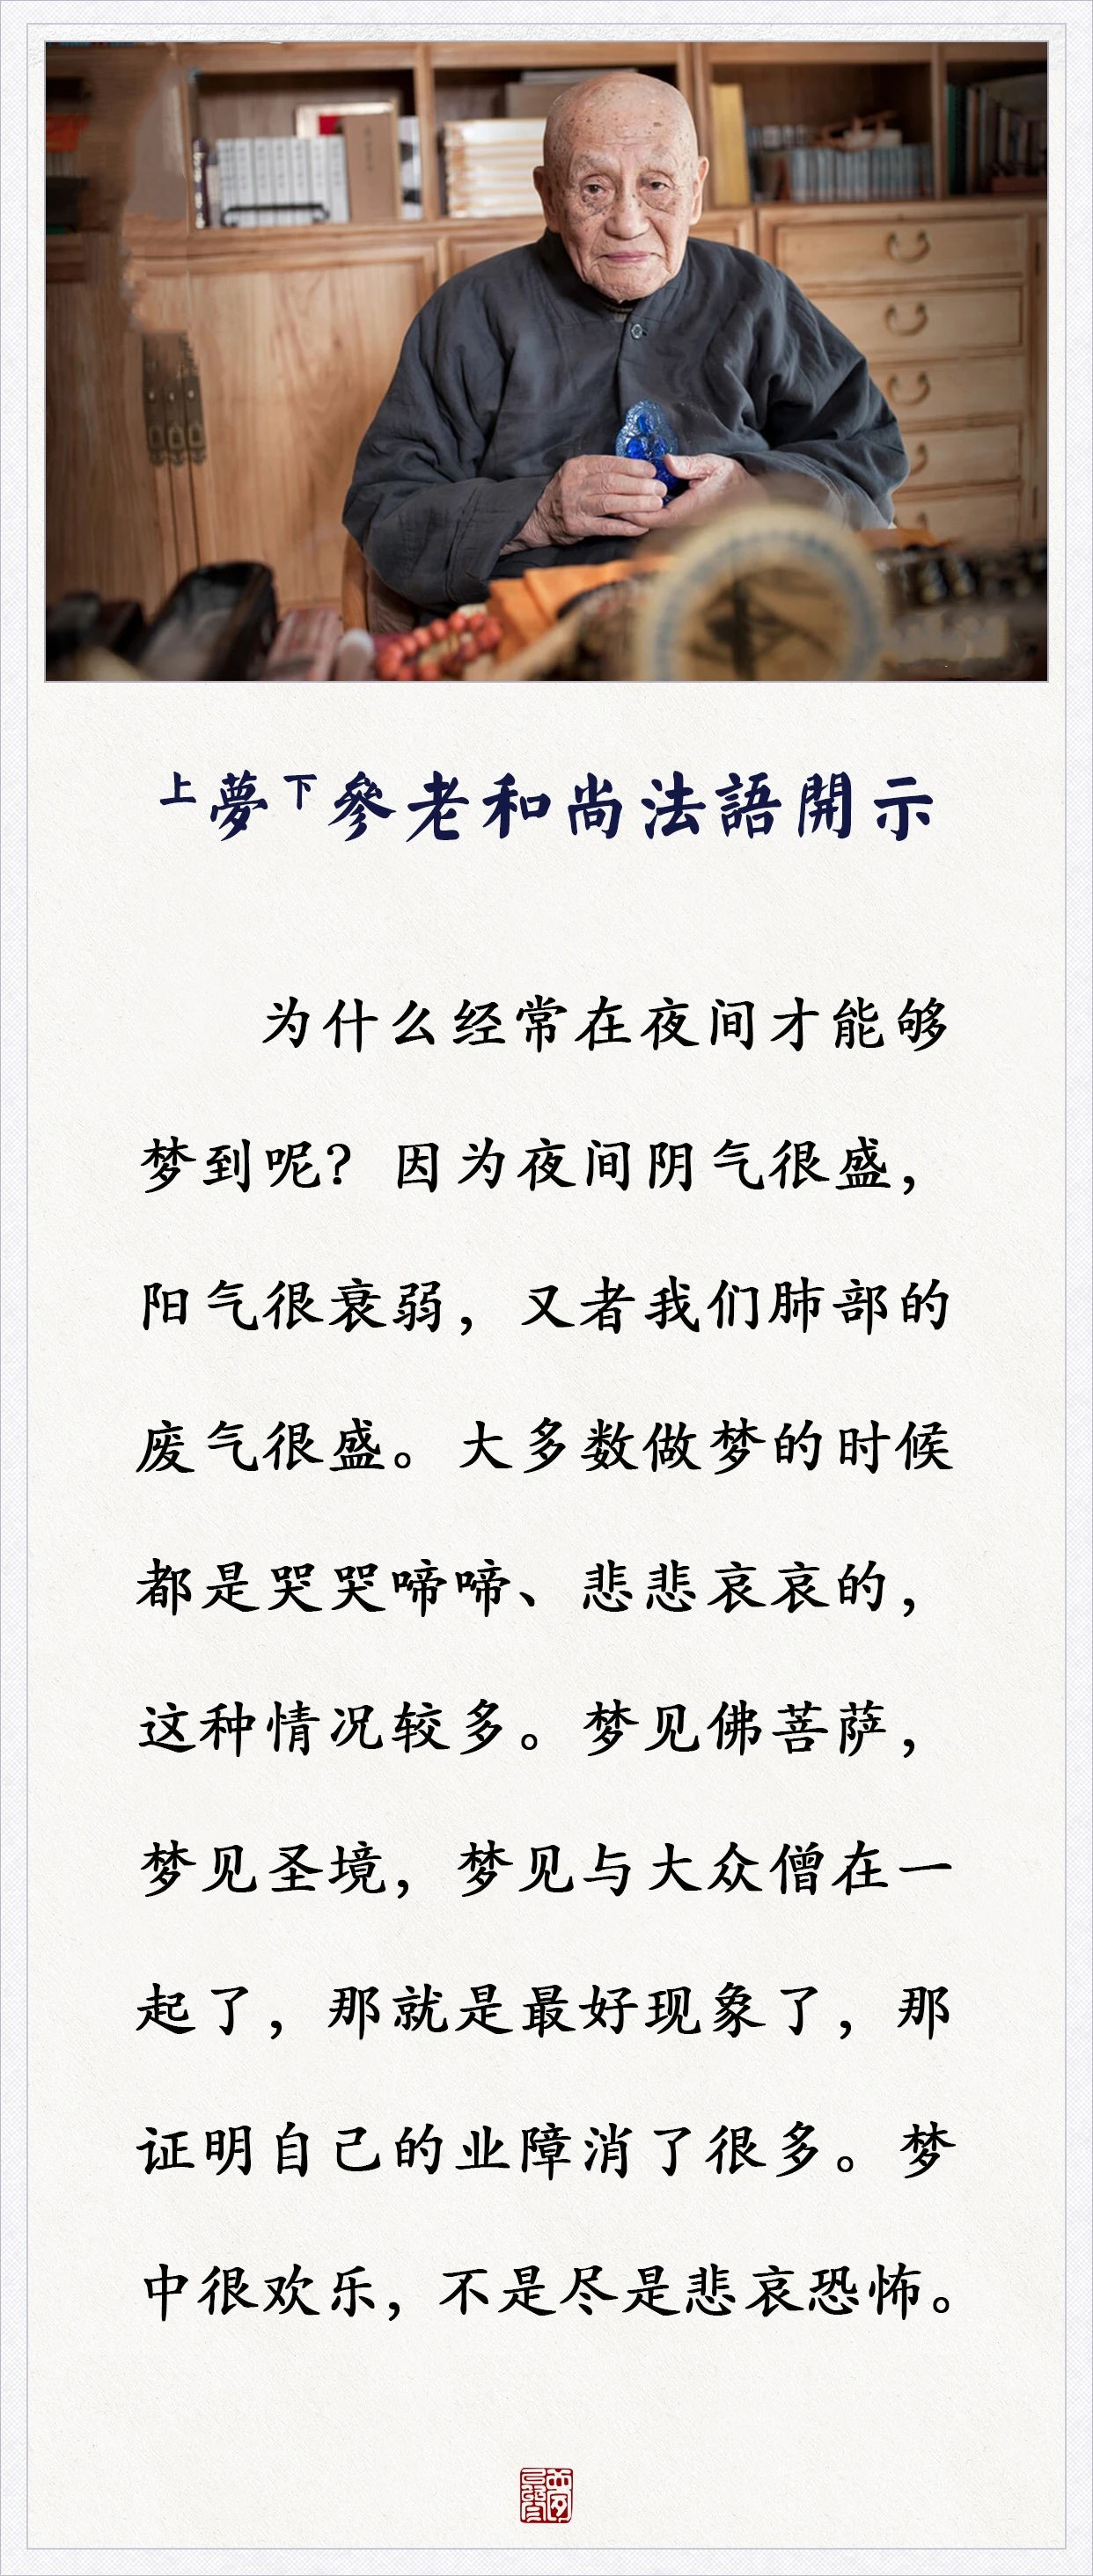 上夢下參老和尚法語開示
为什么经常在夜间才能够
梦到呢？因为夜间阴气很盛，
阳气很衰弱，又者我们肺部的
废气很盛。大多数做梦的时候
都是哭哭啼啼、悲悲哀哀的，
这种情况较多。梦见佛菩萨，
梦见圣境，梦见与大众僧在一
起了，那就是最好现象了，那
证明自己的业障消了很多。梦
中很欢乐，不是尽是悲哀恐怖。